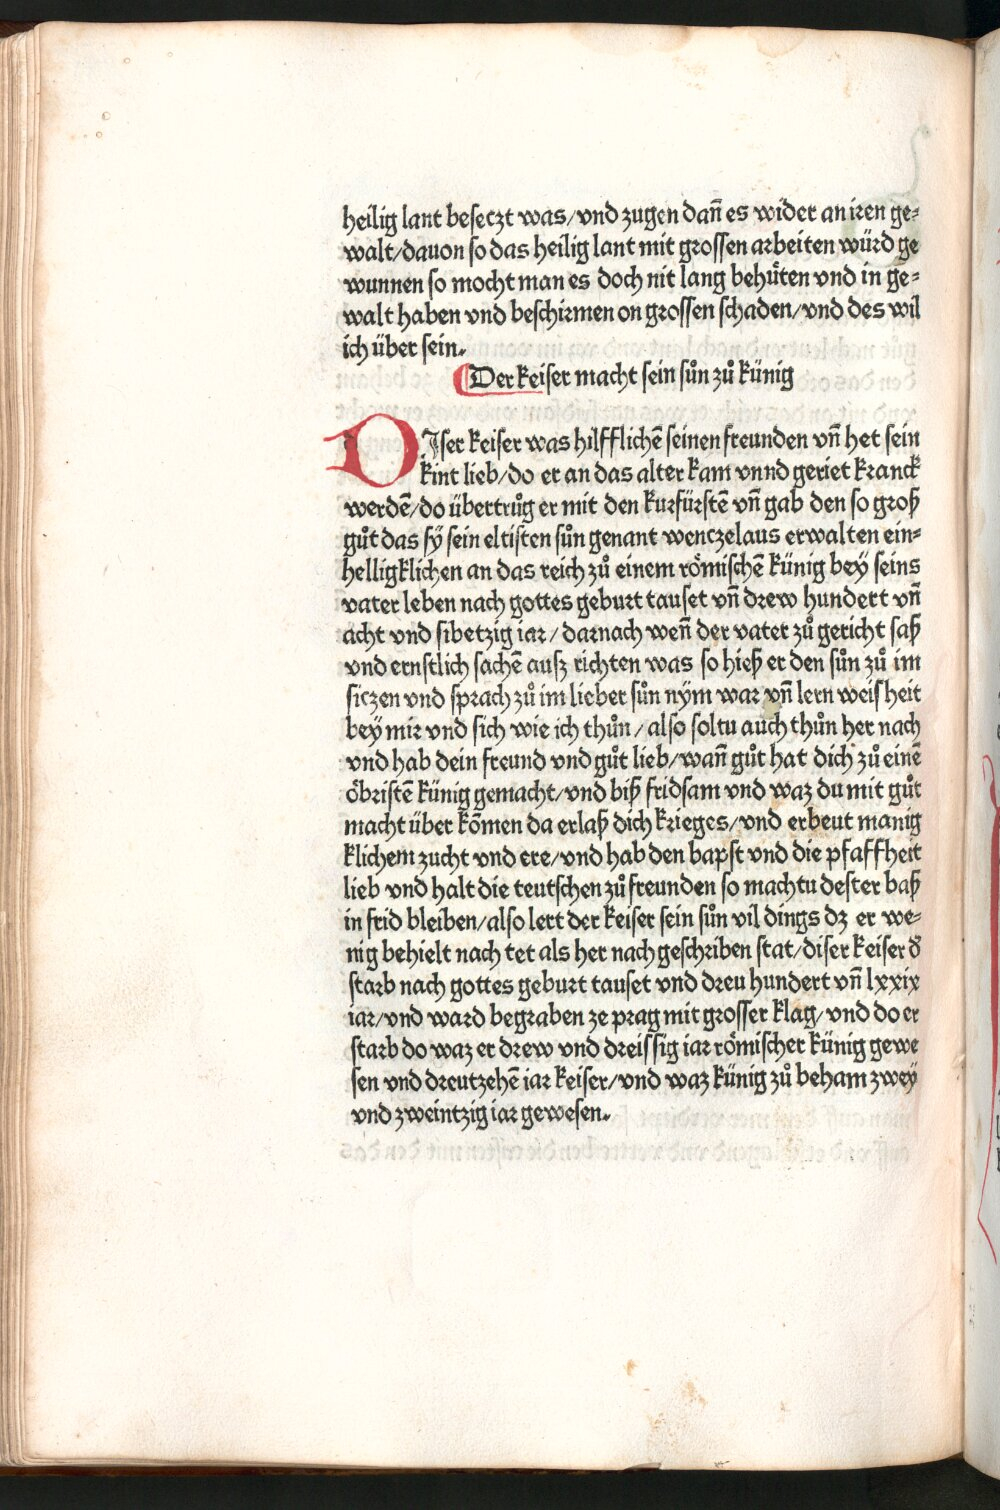 heilig lant beseczt was/vnd zugen dañ es wider an iren ge⸗
walt/dauon so das heilig lant mit grossen arbeiten würd ge
wunnen so mocht man es doch nit lang behuͤten vnd in ge⸗
walt haben vnd beschirmen on grossen schaden/vnd des wil
ich über sein.
Der keiser macht sein sůn zů künig
DJser keiser was hilfflichē seinen freunden vñ het sein
kint lieb/do er an das alter kam vnnd geriet kranck
werdē/do übertrůg er mit den kurfürstē vñ gab den so groß
gůt das sÿ sein eltisten sůn genant wenczelaus erwalten ein⸗
helligklichen an das reich zů einem roͤmischē künig bey seins
vater leben nach gottes geburt tauset vñ drew hundert vñ
acht vnd sibetzig iar/darnach weñ der vater zů gericht saß
vnd ernstlich sachē ausz richten was so hieß er den sůn zů im
siczen vnd sprach zů im lieber sůn nÿm war vñ lern weisheit
bey mir vnd sich wie ich thůn/also soltu auch thůn her nach
vnd hab dein freund vnd gůt lieb/wañ gůt hat dich zů einē
oͤbristē künig gemacht/vnd biß fridsam vnd waz du mit gůt
macht über kōmen da erlaß dich krieges/vnd erbeut manig
klichem zucht vnd ere/vnd hab den bapst vnd die pfaffheit
lieb vnd halt die teutschen zů freunden so machtu dester baß
in frid bleiben/also lert der keiser sein sůn vil dings dz er we⸗
nig behielt nach tet als her nach geschriben stat/diser keiser d̕
starb nach gottes geburt tauset vnd dreu hundert vñ lxxix
iar/vnd ward begraben ze prag mit grosser klag/vnd do er
starb do waz er drew vnd dreissig iar roͤmischer künig gewe
sen vnd dreutzehē iar keiser/vnd waz künig zů beham zwey
vnd zweintzig iar gewesen.